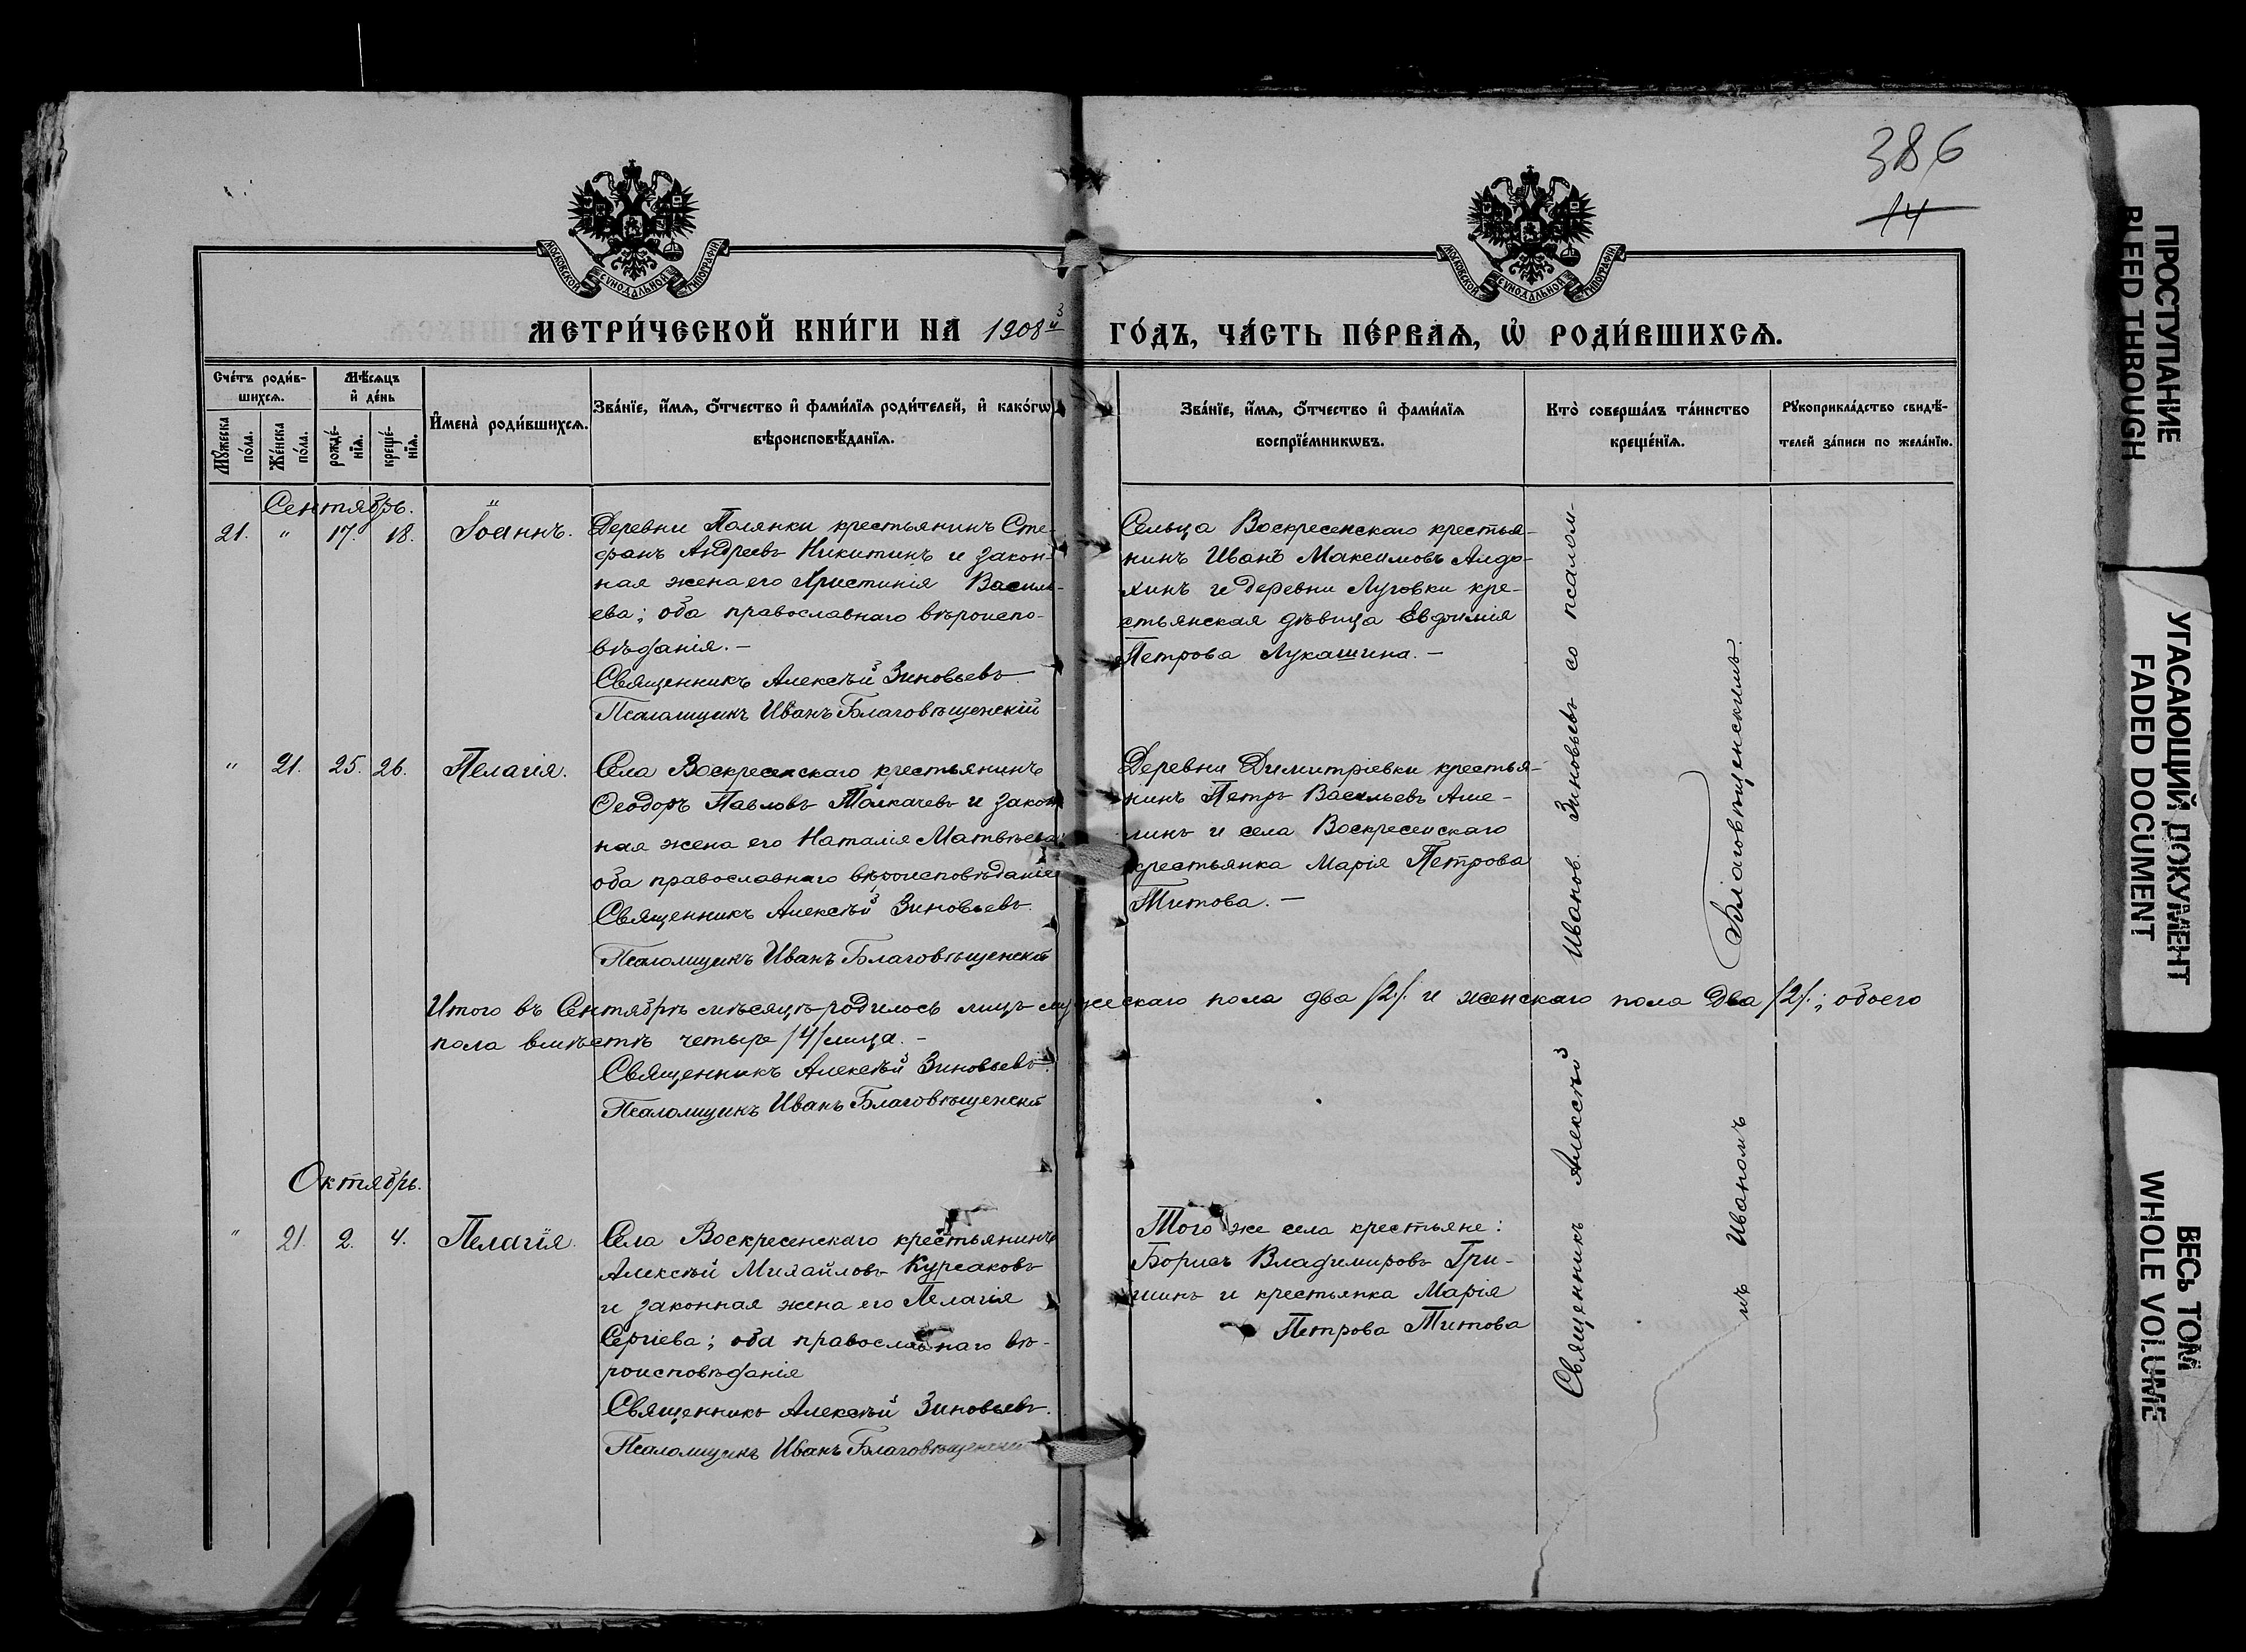 386
14
МОСКОВСКОЙ СѴНОДАЛЬНОЙ ТИПОГРАФІИ
МОСКОВСКОЙ СѴНОДАЛЬНОЙ ТИПОГРАФІИ
МЕТРИ́ЧЕСКОЙ КНИ́ГИ НА 1908й ГО́ДЪ, ЧА́СТЬ ПЕ́РВАѦ, Ѡ҆ РОДИ́ВШИХСѦ.
Счетъ роди́в-
шихсѧ.
Мѣ́сѧцъ
и҆ де́нь
Мꙋ́жеска
по́ла.
Же́нска
по́ла.
рожде́-
нїѧ.
креще́-
нїѧ.
И҆мена̀ роди́вшихсѧ.
Зва́нїе, и҆́мѧ, ѻ҆́тчество и҆ фами́лїѧ роди́телей, и҆ како́гѡ
вѣроисповѣ́данїѧ.
Зва́нїе, и҆́мѧ, ѻ҆́тчество и҆ фами́лїѧ
воспрїе́мникѡвъ.
Кто̀ соверша́лъ та́инство
креще́нїѧ.
Рꙋкоприкла́дство свидѣ́-
телей за́писи по жела́нїю.
Сентябрь.
21. " 17. 18. Іоаннъ.
Деревни Полянки крестьянинъ Сте-
фанъ Андреевъ Никитинъ и закон-
ная жена его Христинія Василь-
ева; оба православнаго вѣроиспо-
вѣданія. –
Священникъ Алексѣй Зиновьевъ.
Псаломщикъ Иванъ Благовѣщенскій
Сельца Воскресенскаго крестья-
нинъ Иванъ Максимовъ Алдо-
хинъ и деревни Луговки кре-
стьянская дѣвица Евфимія
Петрова Лукашина. –
" 21. 25. 26. Пелагія.
Села Воскресенскаго крестьянинъ
Ѳеодоръ Павловъ Толкачевъ и закон
ная жена его Наталія Матвѣева
оба православнаго вѣроисповѣданія
Священникъ Алексѣй Зиновьевъ.
Псаломщикъ Иванъ Благовѣщенскій
Деревни Димитріевки крестья-
нинъ Петръ Васильевъ Аме-
линъ и села Воскресенскаго
крестьянка Марія Петрова
Титова. –
Итого въ Сентябрѣ мѣсяцѣ родилось лицъ мужескаго пола два /2/. и женскаго пола два /2/.; обоего
пола вмѣстѣ четыре /4/ лица. –
Священникъ Алексѣй Зиновьевъ.
Псаломщикъ Иванъ Благовѣщенскій
Октябрь.
" 21. 2. 4. Пелагія.
Села Воскресенскаго крестьянинъ
Алексѣй Михайловъ Курсаковъ
и законная жена его Пелагія
Сергіева; оба православнаго вѣ-
роисповѣданія
Священникъ Алексѣй Зиновьевъ.
Псаломщикъ Иванъ Благовѣщенскій
Того же села крестьяне:
Борисъ Владимировъ Гри-
шинъ и крестьянка Марія
Петрова Титова
Священникъ Алексѣй Иванов. Зиновьевъ со псалом-
мъ Иваномъ Благовѣщенскимъ.
ПРОСТУПАНИЕ
BLEED THROUGH
УГАСАЮЩИЙ ДОКУМЕНТ
FADED DOCUMENT
ВЕСЬ ТОМ
WHOLE VOLUME